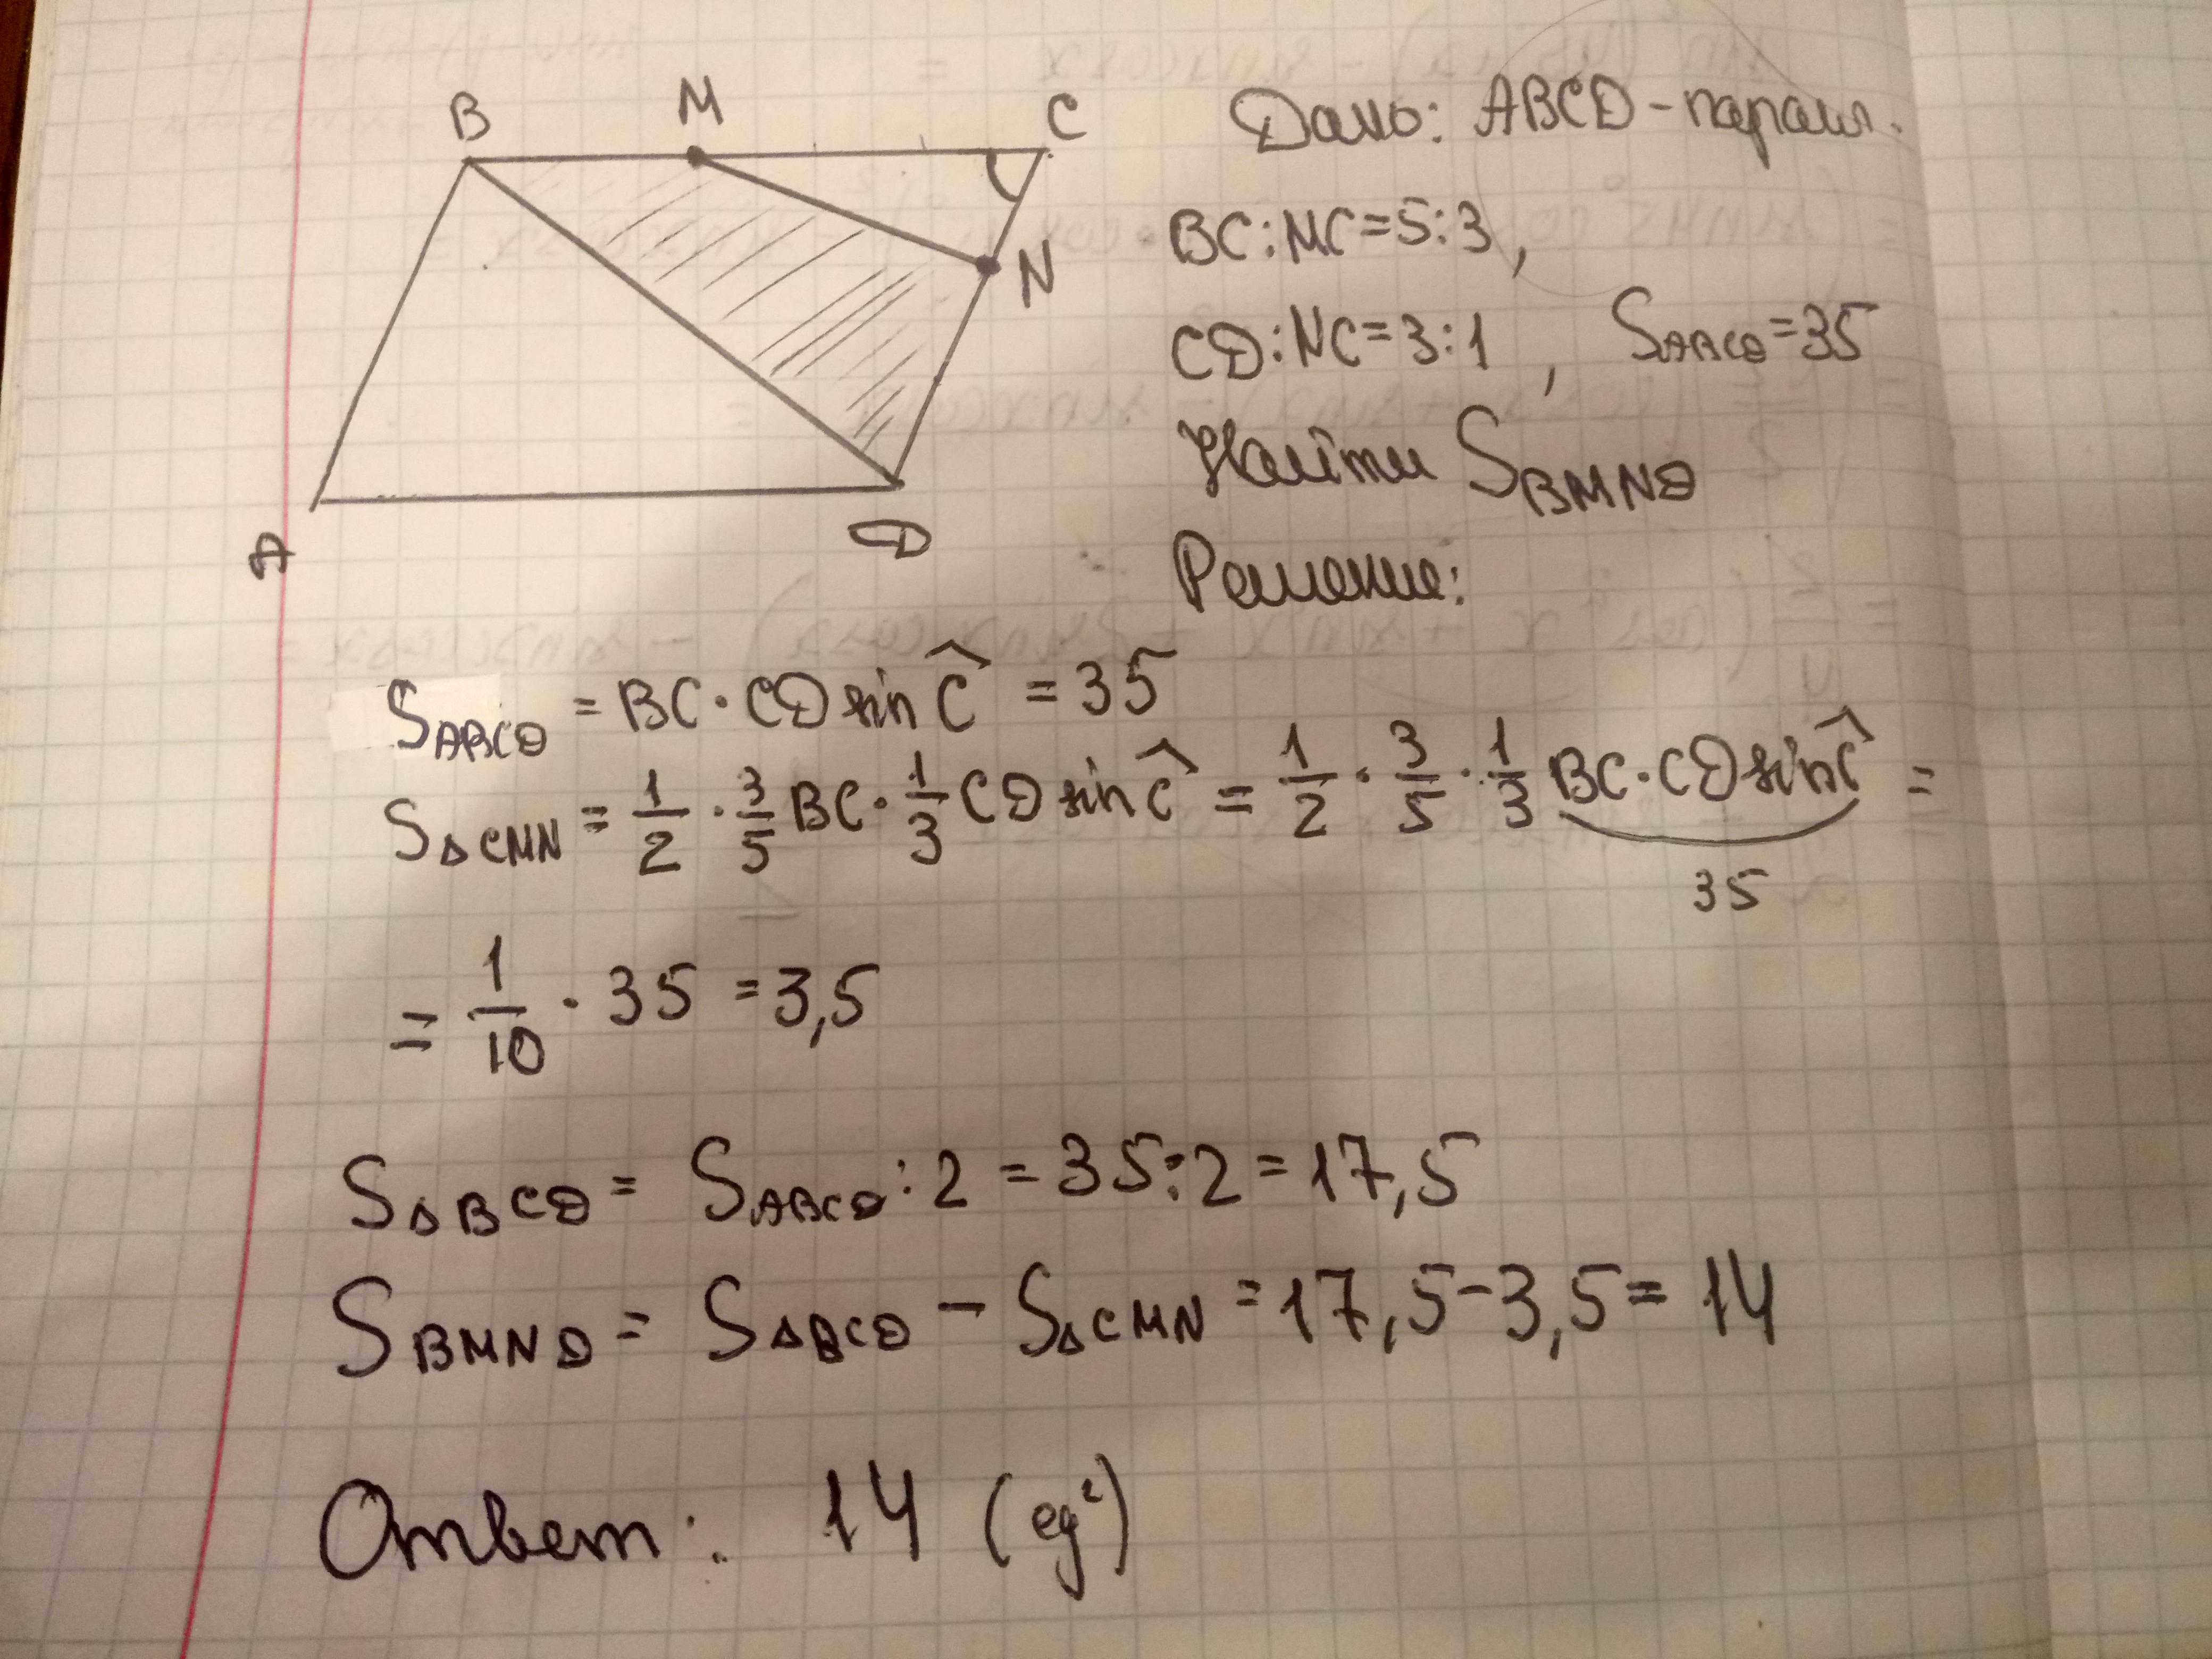 B M C
N
A D
Дано: ABCD - парал.
BC:MC=5:3,
CD:NC=3:1, S_ABCD=35
Найти S_BMND
Решение:
S_ABCD = BC·CD sin Ĉ = 35
S_ΔCMN = 1/2 · 3/5 BC · 1/3 CD sin Ĉ = 1/2 · 3/5 · 1/3 BC·CD sin Ĉ =
35
= 1/10 · 35 = 3,5
S_ΔBCD = S_ABCD : 2 = 35:2 = 17,5
S_BMND = S_ΔBCD − S_ΔCMN = 17,5−3,5 = 14
Ответ: 14 (ед²)